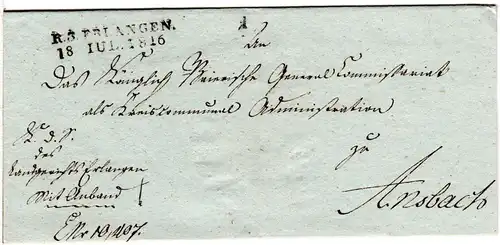 R.3 ERLANGEN.
18 IUL. 1816
An
Das Königlich Baierische General Commissariat
als Kreiscommunal Administration
zu
Ansbach
K. d. S.
des
Landgerichts Erlangen
Mit Anband
E Nr 10,407.